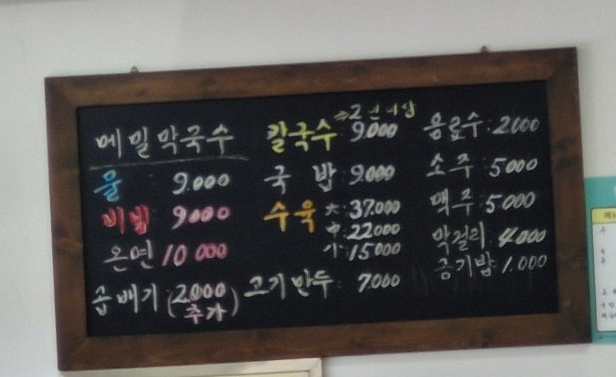 메밀막국수
물 9.000
비빔 9000
온면 10 000
곱배기 (2.000 추가)
⇒2인이상
칼국수 9.000
국 밥 9.000
수육 大 37.000
中 22000
小 15000
고기만두 7.000
음료수: 2000
소주: 5000
맥주: 5.000
막걸리: 4.000
공기밥: 1.000